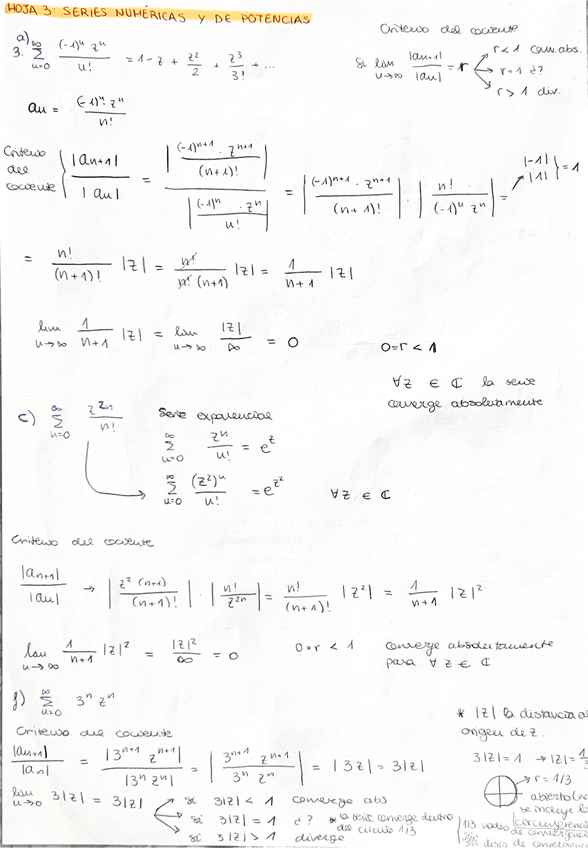 HOJA 3: SERIES NUMÉRICAS Y DE POTENCIAS
Criterio del cociente
Si lim n→∞ |an+1|/|an| = r
r < 1 conv abs.
r = 1 ¿?
r > 1 div.
a)
3. ∞ Σ n=0 (-1)^n z^n / n! = 1 - z + z^2/2 + z^3/3! + ...
an = (-1)^n · z^n / n!
Criterio del cociente { |an+1| / |an| = |(-1)^n+1 · z^n+1 / (n+1)!| / |(-1)^n · z^n / n!| = |(-1)^n+1 · z^n+1 / (n+1)!| · |n! · / (-1)^n z^n| =
|-1| |1| } = 1
= n! / (n+1)! |z| = n! / n! (n+1) |z| = 1 / n+1 |z|
lim n→∞ 1 / n+1 |z| = lim n→∞ |z| / ∞ = 0
0=r < 1
∀z ∈ ℂ la serie
converge absolutamente
c) ∞ Σ n=0 z^2n / n!
Serie exponencial
∞ Σ n=0 z^n / n! = e^z
∞ Σ n=0 (z^2)^n / n! = e^z^2 ∀z ∈ ℂ
Criterio del cociente
|an+1| / |an| → |z^2 (n+1) / (n+1)!| · |n! / z^2n| = n! / (n+1)! |z^2| = 1 / n+1 |z|^2
lim n→∞ 1 / n+1 |z|^2 = |z|^2 / ∞ = 0
0=r < 1
converge absolutamente
para ∀ z ∈ ℂ
f) ∞ Σ n=0 3^n z^n
Criterio del cociente
|an+1| / |an| = |3^n+1 z^n+1| / |3^n z^n| = |3^n+1 z^n+1 / 3^n z^n| = |3z| = 3|z|
lim n→∞ 3|z| = 3|z|
si 3|z| < 1 converge abs
si 3|z| = 1 ¿?
si 3|z| > 1 diverge
* la serie converge dentro
del círculo 1/3
* |z| la distancia al
origen de z.
3|z| = 1 → |z| = 1/3
r = 1/3
abierto (no
se incluye la
circunferencia
1/3 radio de convergencia
disco de convergencia